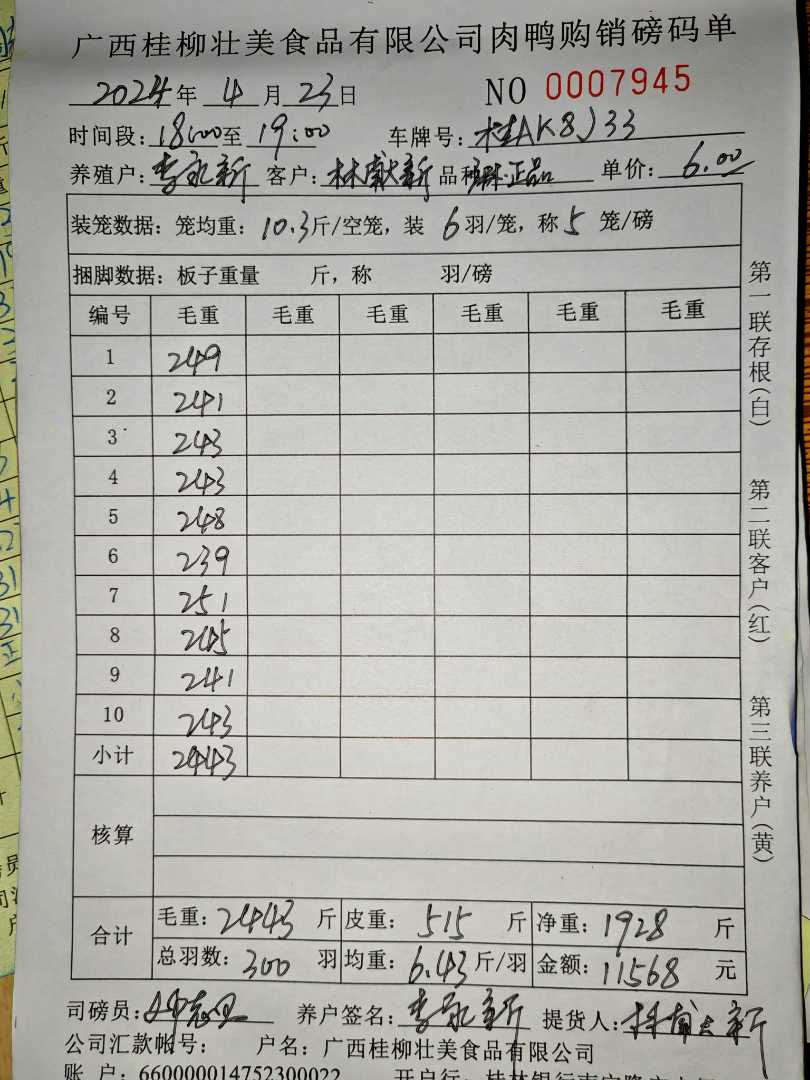 广西桂柳壮美食品有限公司肉鸭购销磅码单
2024年 4 月 23 日 NO 0007945
时间段: 18:00 至 19:00 车牌号: 桂AK8J33
养殖户: 李永新 客户: 林献新 品种: 正品 单价: 6.00
装笼数据: 笼均重: 10.3 斤/空笼, 装 6 羽/笼, 称 5 笼/磅
捆脚数据: 板子重量 斤, 称 羽/磅
编号 毛重 毛重 毛重 毛重 毛重 毛重
1 249
2 241
3 243
4 243
5 248
6 239
7 251
8 245
9 241
10 243
小计 2443
核算
合计 毛重: 2443 斤 皮重: 515 斤 净重: 1928 斤
总羽数: 300 羽 均重: 6.43 斤/羽 金额: 11568 元
司磅员: 养户签名: 李永新 提货人: 林献新
公司汇款帐号: 户名: 广西桂柳壮美食品有限公司
账 户: 660000014752300022 开户行: 桂林银行南宁隆安
第一联存根(白)
第二联客户(红)
第三联养户(黄)